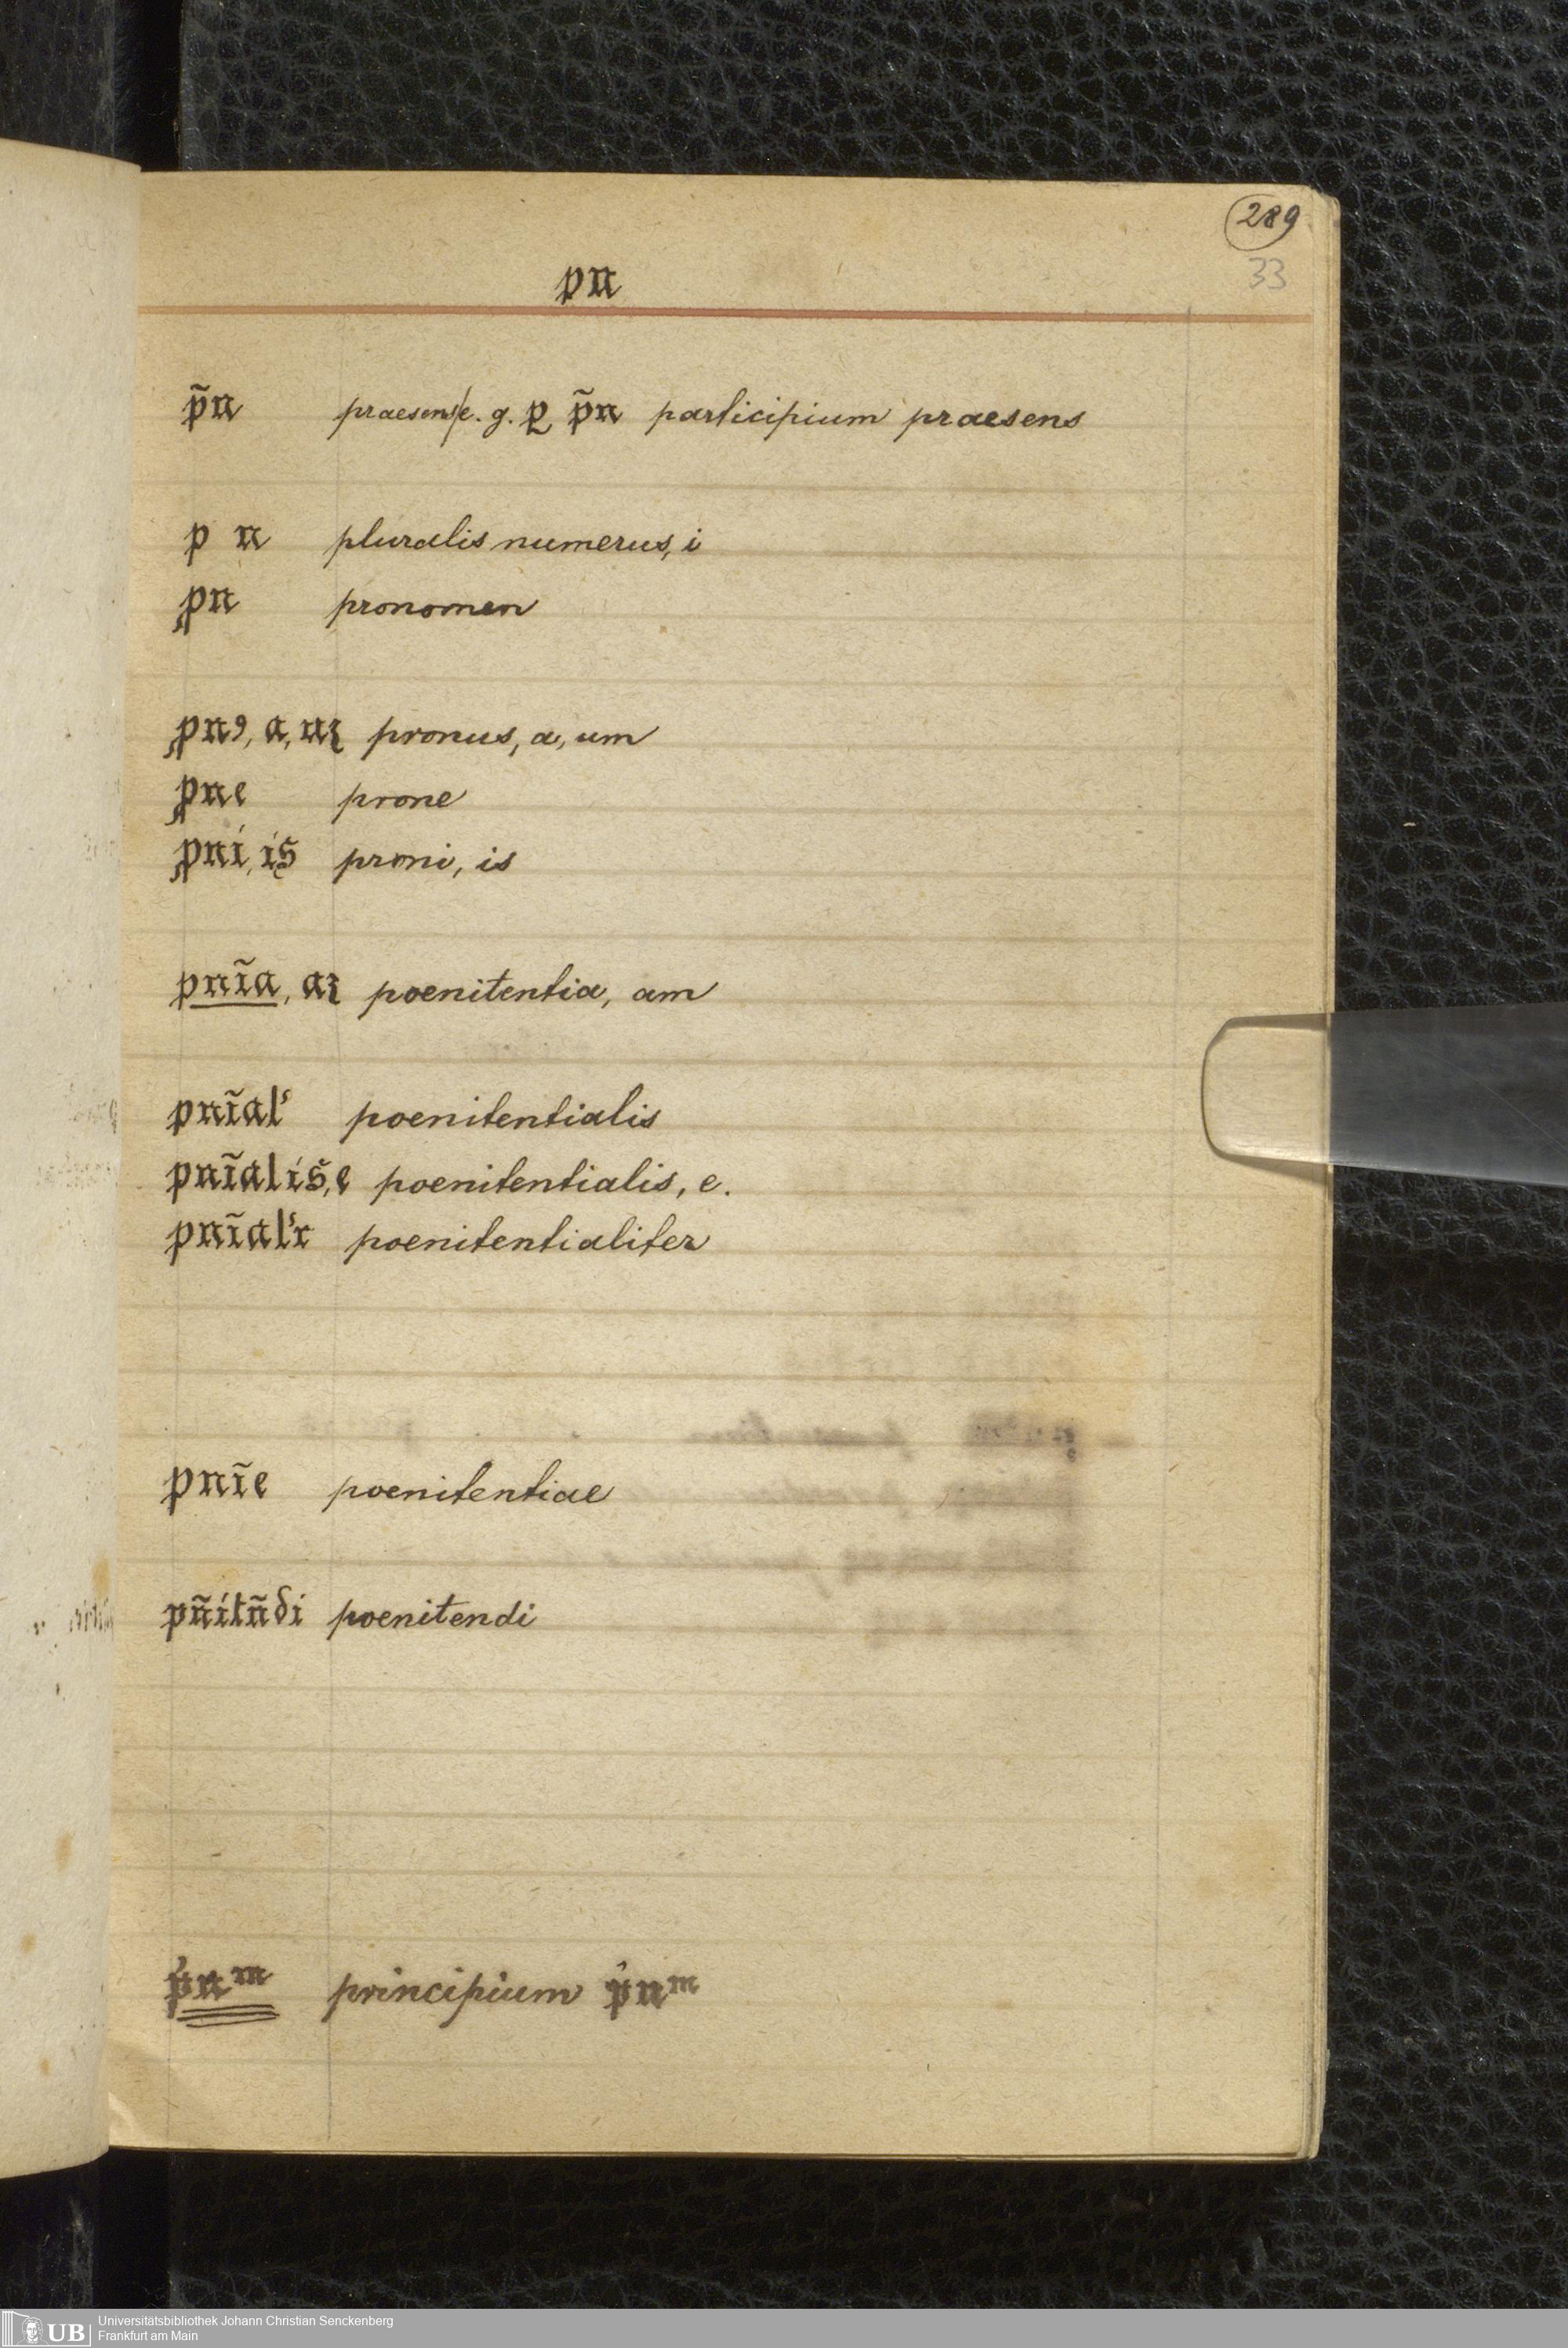 289
33
pn
p̃n praesens/e. g. ꝑ p̃n participium praesens
p n pluralis numerus, i
ꝓn pronomen
ꝓnꝰ, a, uꝫ pronus, a, um
ꝓne prone
ꝓni, is proni, is
pnĩa, aꝫ poenitentia, am
pnĩal' poenitentialis
pnĩalis, e poenitentialis, e.
pnĩal'r poenitentialiter
pnĩe poenitentiae
pñitñdi poenitendi
p̍nᵐ principium p̍nᵐ
UB Universitätsbibliothek Johann Christian Senckenberg
Frankfurt am Main